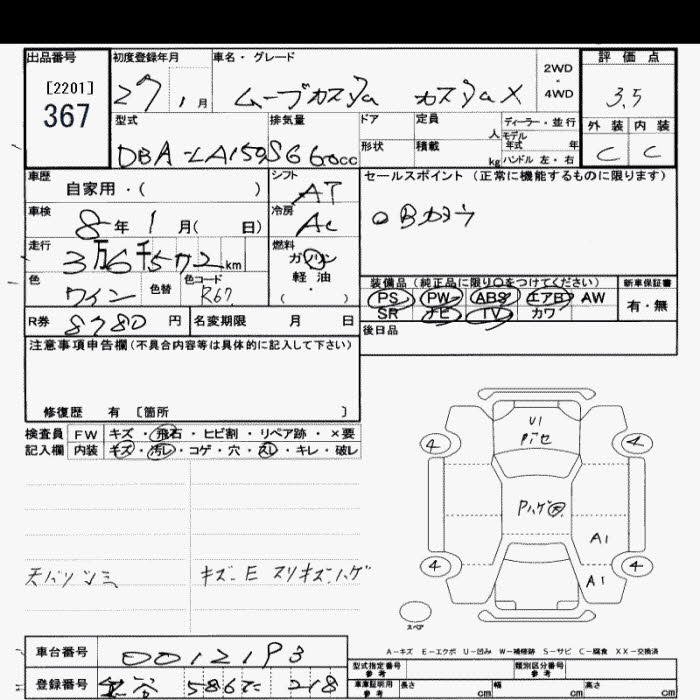 出品番号
[2201]
367
初度登録年月
27 1月
車名・グレード
ムーブカスタム カスタムX
2WD
・
4WD
評価点
3.5
外装 内装
C C
型式
DBA-LA150S
排気量
660cc
ドア
形状
定員 人
積載 kg
ディーラー・並行
モデル年式 年
ハンドル 左・右
車歴
自家用・( )
シフト
AT
セールスポイント (正常に機能するものに限ります)
車検
8年1月( 日)
冷房
AC
走行
3万6千572km
燃料
ガソリン
軽油
・( )
色
ワイン
色替
色コード
R67
装備品 (純正品に限り○をつけてください)
PS PW ABS エアB AW
SR ナビ TV カワ
新車保証書
有・無
R券 8780円
名変期限 月 日
後日品
注意事項申告欄(不具合内容等は具体的に記入して下さい)
修復歴 有 [箇所 ]
検査員 FW キズ・飛石・ヒビ割・リペア跡・×要
記入欄 内装 キズ・汚レ・コゲ・穴・スレ・キレ・破レ
U1
4 4
A1
4 4
A1
スペア
天バリシミ
キズ.E スリキズ.ハゲ
A-キズ E-エクボ U-凹み W-補修跡 S-サビ C-腐食 XX-交換済
車台番号 0012193
登録番号 218
型式指定番号 参考
類別区分番号 参考
車庫証明用 参考 長さ cm 幅 cm 高さ cm